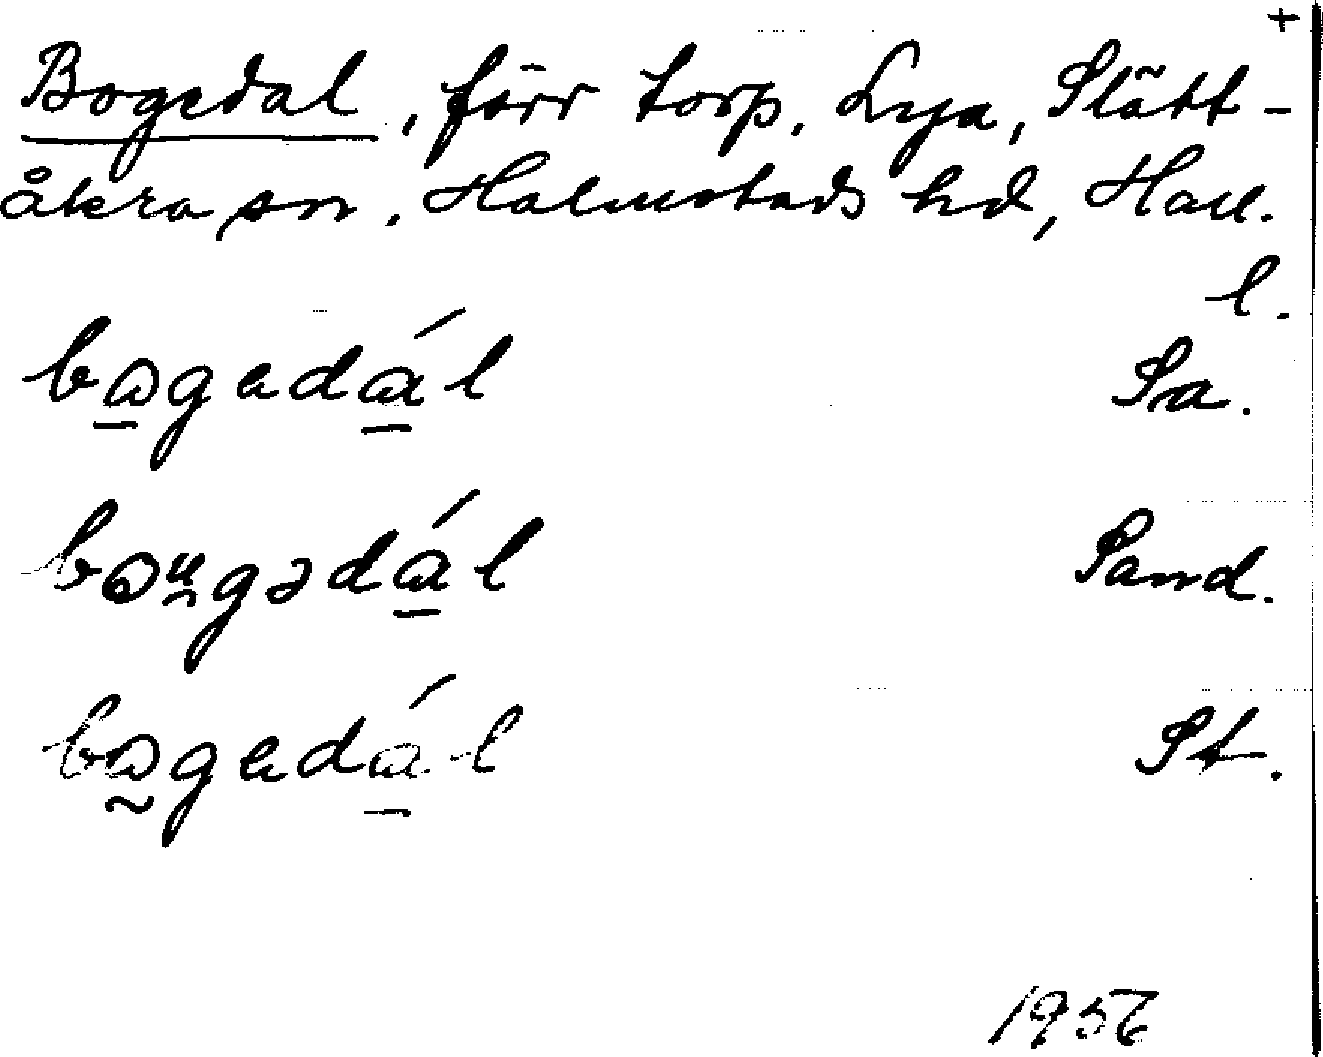 +
Bogedal, förr torp, Lya, Slätt-
åkra sn, Halmstads hd, Hall.
l.
bagadál Sa.
bau̯gədál Sand.
ba̰gadál St.
1956